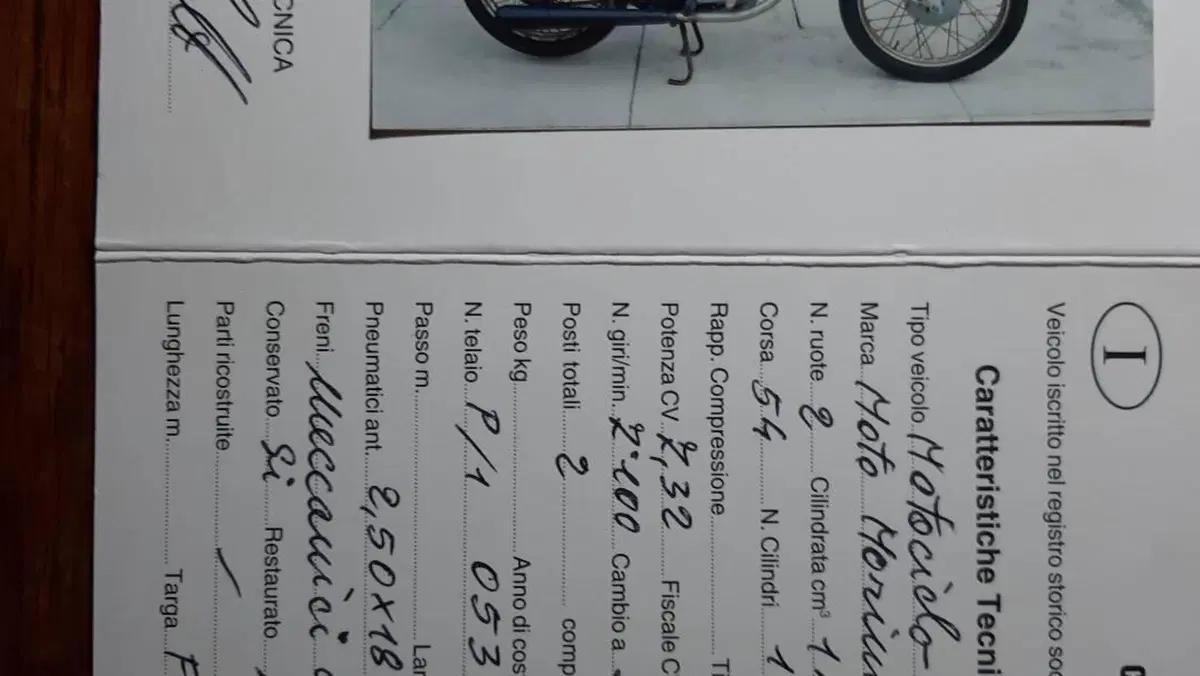 CNICA
I
Veicolo iscritto nel registro storico soc
Caratteristiche Tecni
Tipo veicolo Motociclo
Marca Moto Morin
N. ruote 2 Cilindrata cm³ 1
Corsa 54 N. Cilindri 1
Rapp. Compressione Ti
Potenza CV 7,32 Fiscale C
N. giri/min. Cambio a
Posti totali 2 comp
Peso kg. Anno di cos
N. telaio P/1 053
Passo m. Lar
Pneumatici ant. 2,50x18
Freni Meccanici
Conservato Si Restaurato
Parti ricostruite /
Lunghezza m. Targa F